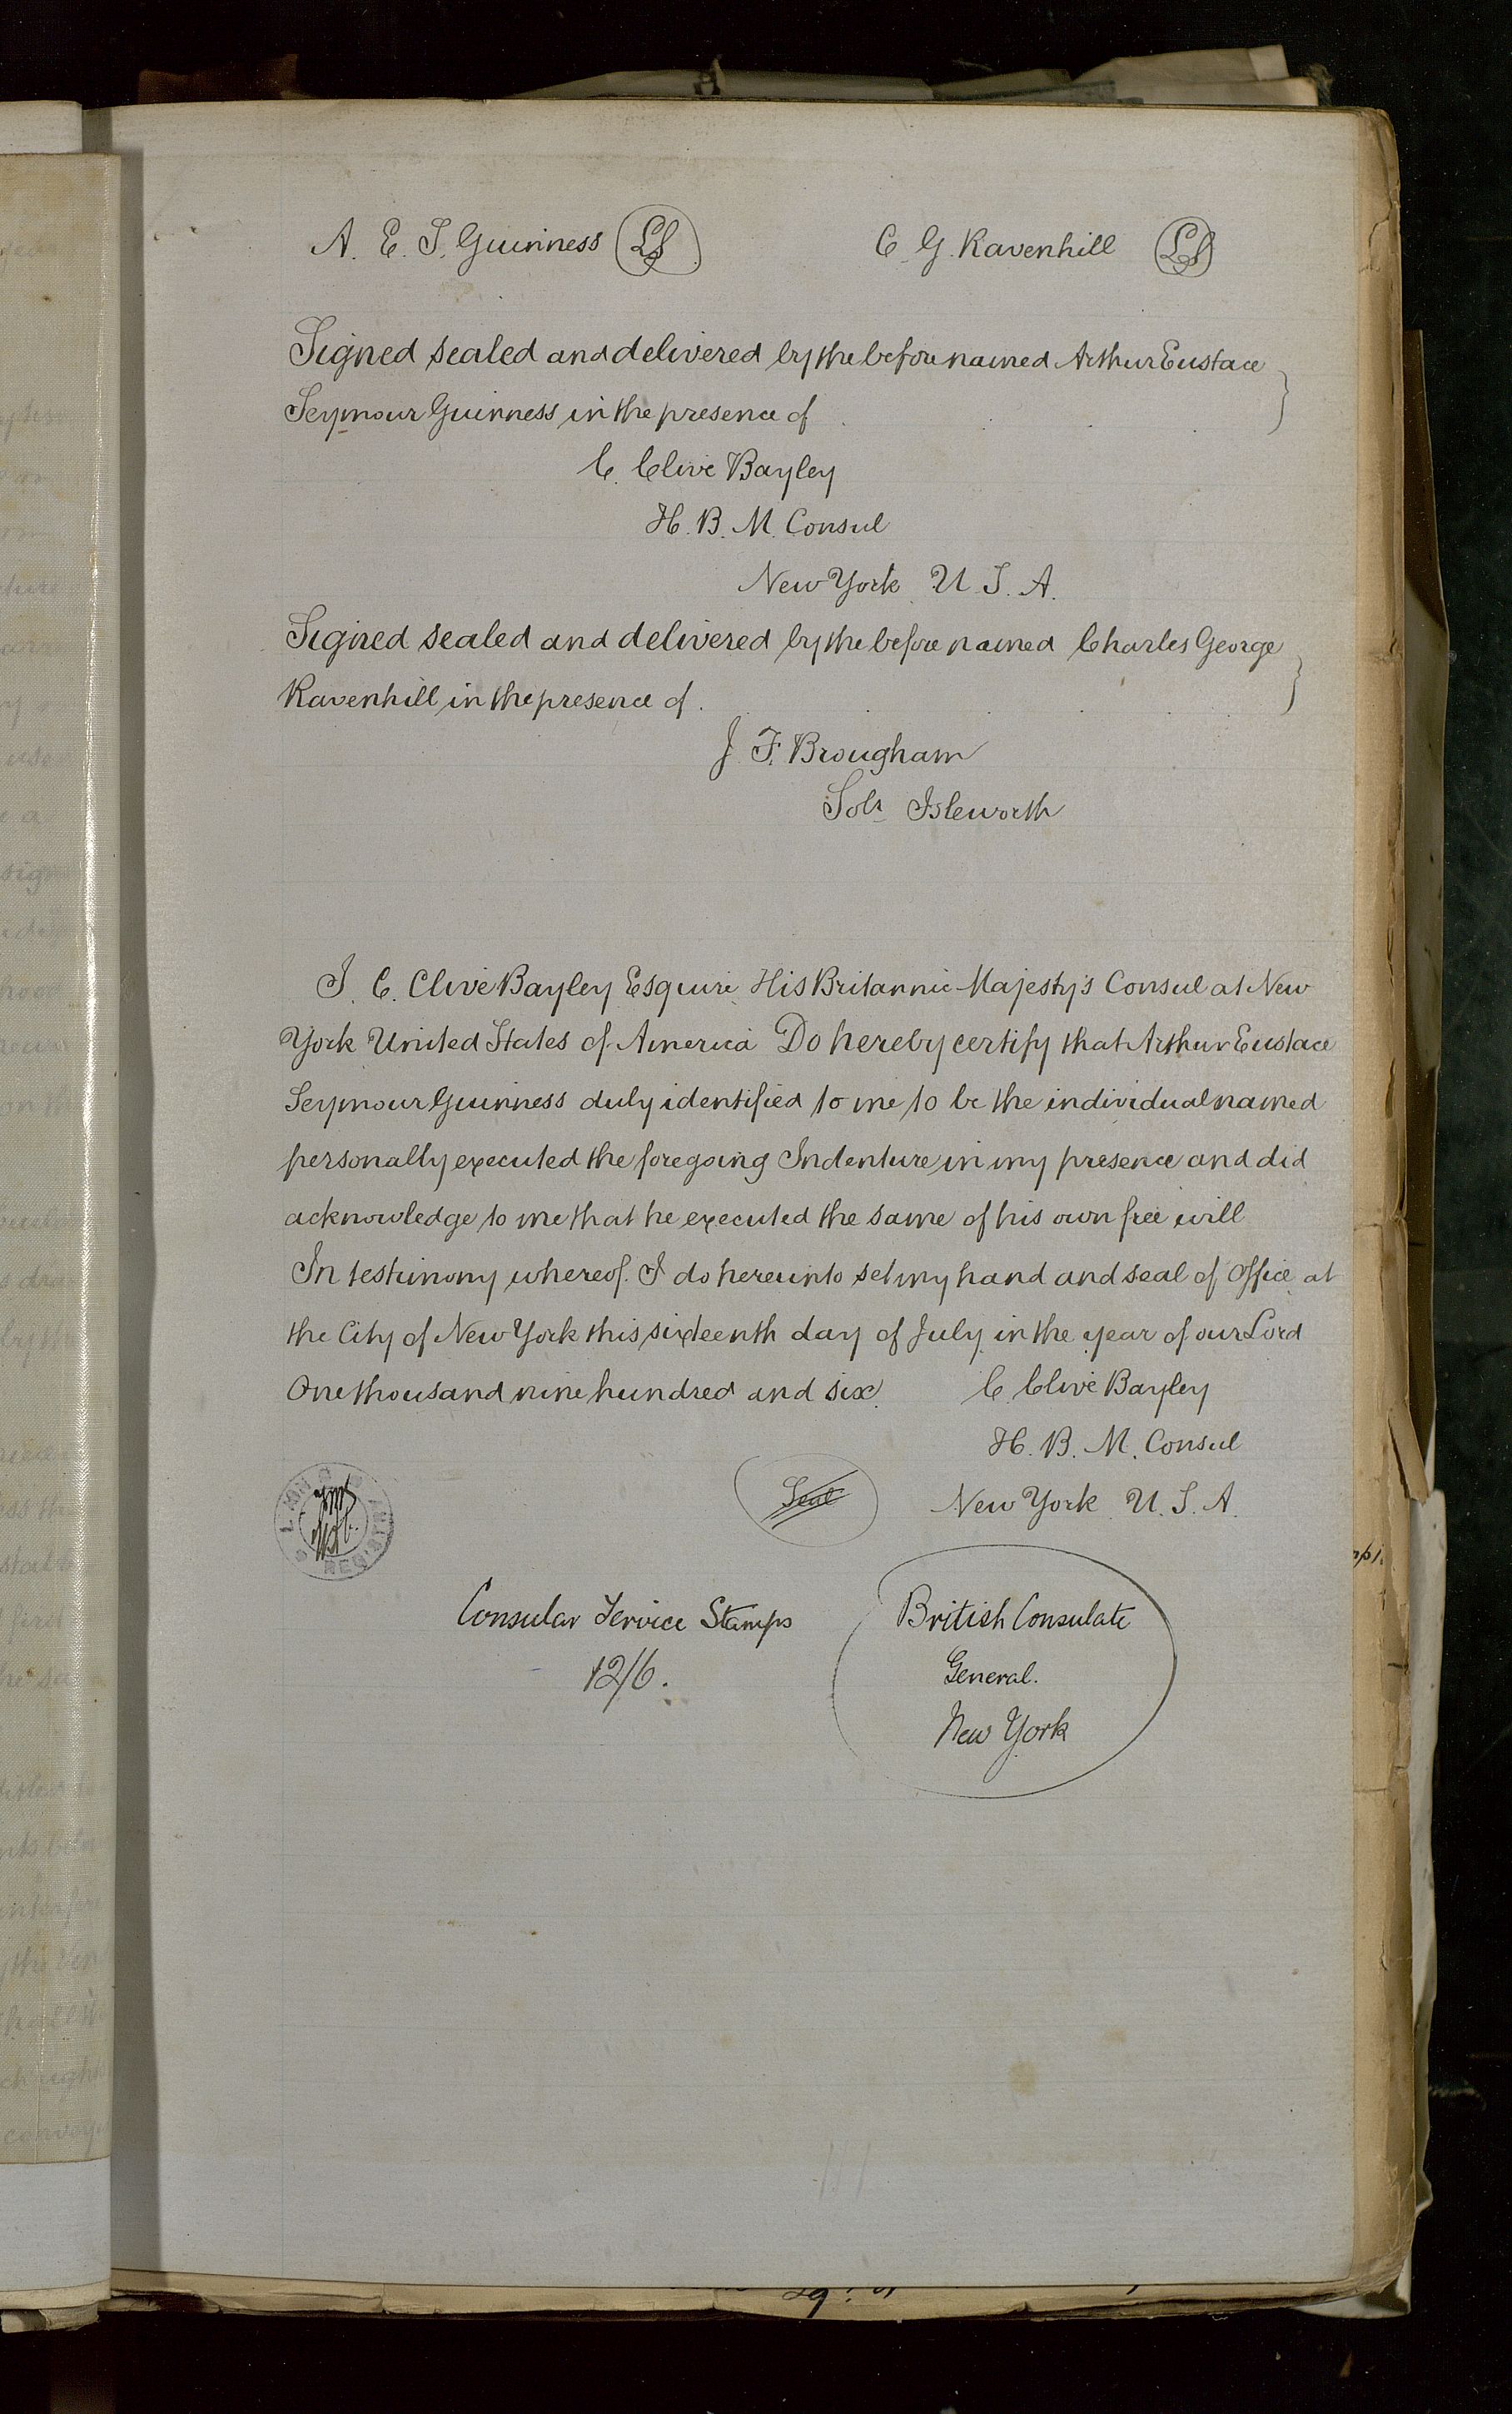 A. E. S. Guinness LS C. G. Ravenhill LS
Signed sealed and delivered by the before named Arthur Eustace
Seymour Guinness in the presence of
C. Clive Bayley
H. B. M. Consul
New York U. S. A.
Signed sealed and delivered by the before named Charles George
Ravenhill in the presence of.
J F. Brougham
Solr Isleworth
I. C. Clive Bayley Esquire His Britannic Majesty's Consul at New
York United States of America Do hereby certify that Arthur Eustace
Seymour Guinness duly identified to me to be the individual named
personally executed the foregoing Indenture in my presence and did
acknowledge to me that he executed the same of his own free will
In testimony whereof I do hereunto set my hand and seal of Office at
the City of New York this sixteenth day of July in the year of our Lord
One thousand nine hundred and six. C Clive Bayley
H. B. M. Consul
Seal New York U. S. A.
Consular Service Stamps
12/6.
British Consulate
General.
New York